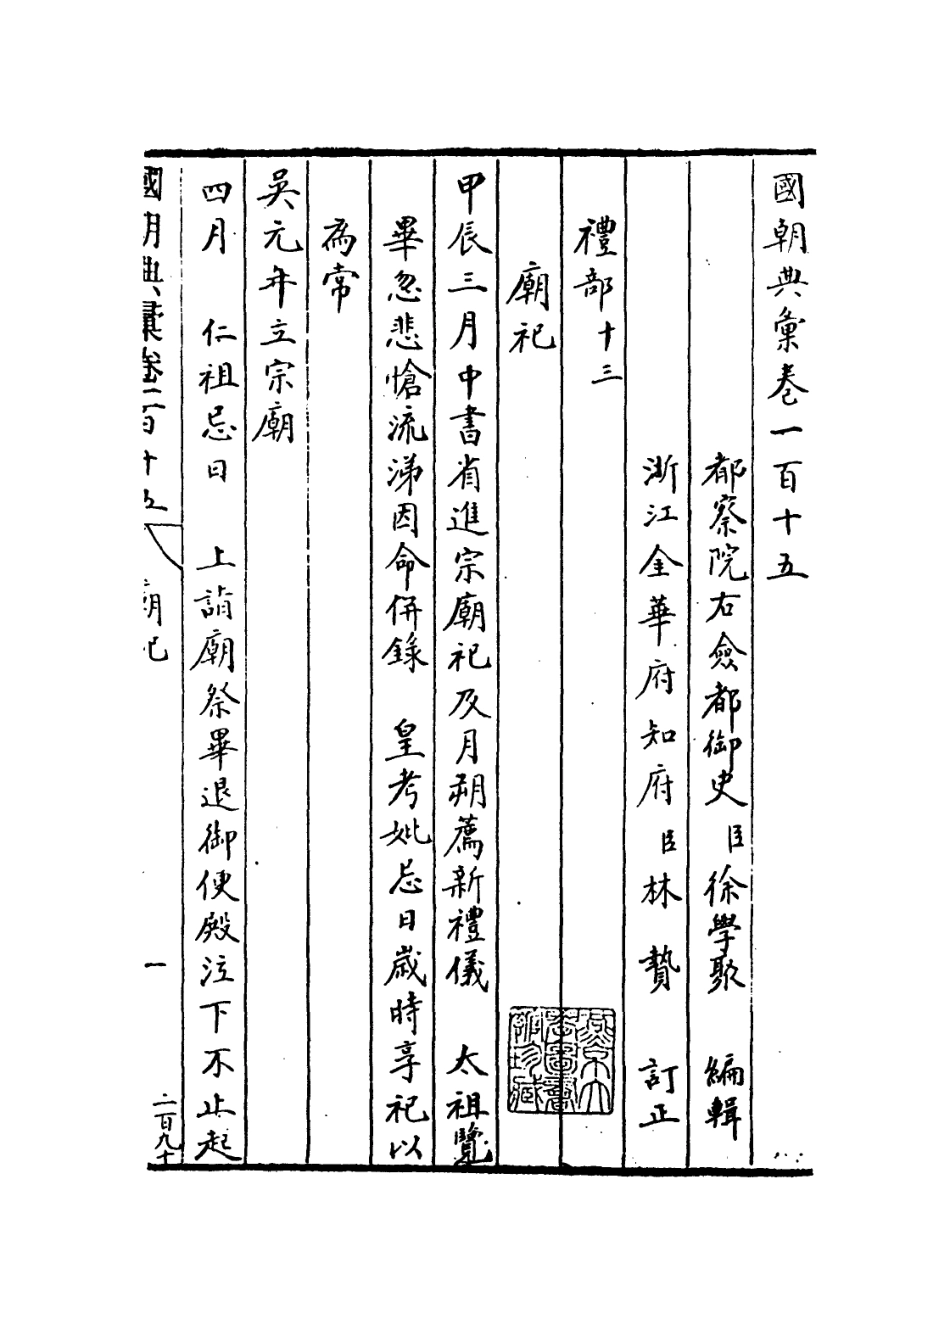 國朝典彙卷一百十五
都察院右僉都御史臣徐學聚　編輯
浙江金華府知府臣林贄　訂正
禮部十三
廟祀
甲辰三月中書省進宗廟祀及月朔薦新禮儀　太祖覽
畢忽悲愴流涕因命併錄　皇考妣忌日歲時享祀以
為常
吳元年立宗廟
四月　仁祖忌日　上詣廟祭畢退御便殿泣下不止起
國朝典彙卷一百十五　廟祀　一　二百九十